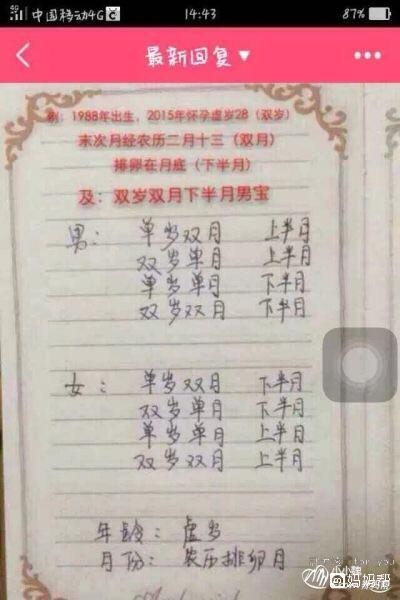 中国移动4G
14:43
87%
最新回复▼
例：1988年出生，2015年怀孕虚岁28（双岁）
末次月经农历二月十三（双月）
排卵在月底（下半月）
及：双岁双月下半月男宝
男： 单岁双月 上半月
双岁单月 上半月
单岁单月 下半月
双岁双月 下半月
女： 单岁双月 下半月
双岁单月 下半月
单岁单月 上半月
双岁双月 上半月
年龄：虚岁
月份：农历排卵月
for you
小小魏
妈妈帮